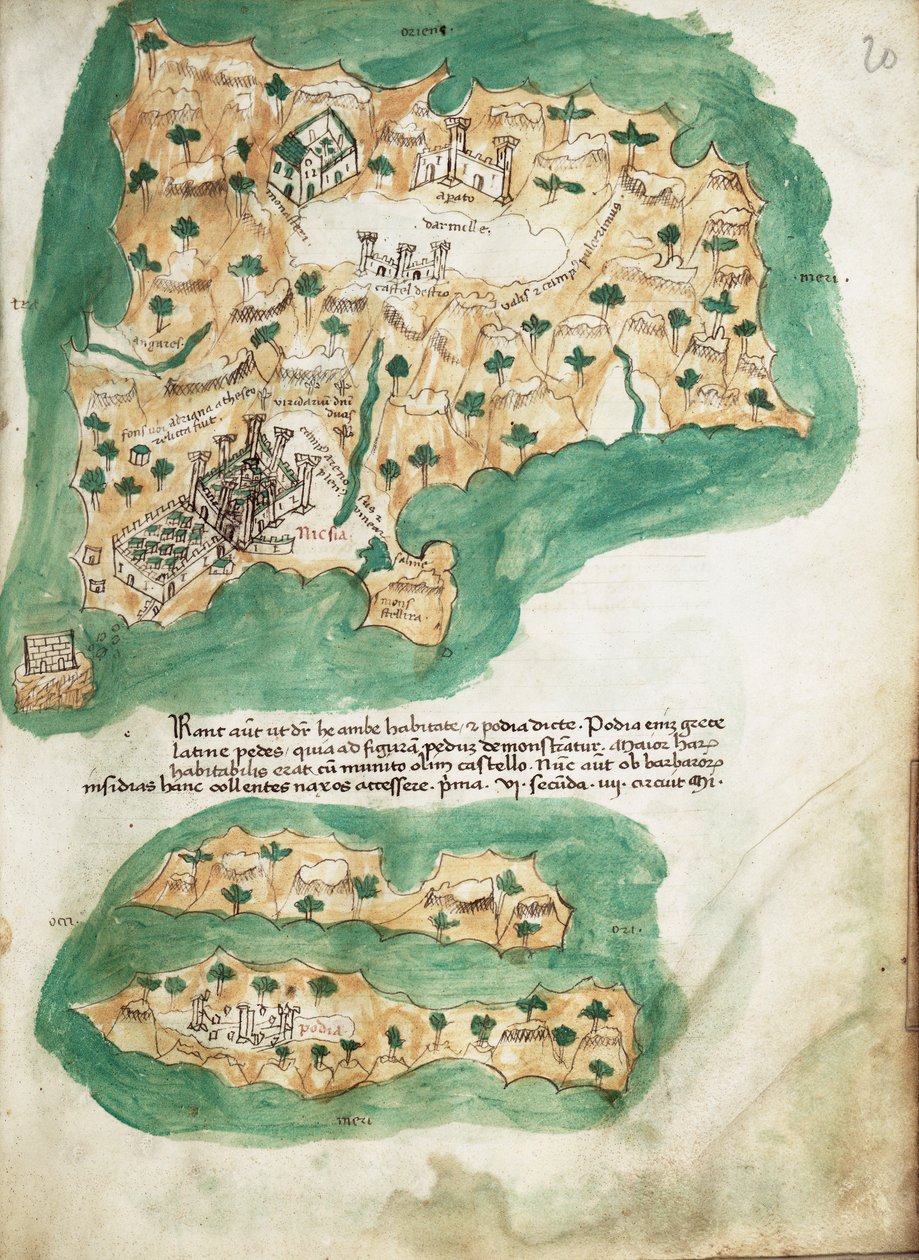 20
oriens.
apato
monasteri.
darmille.
castel destro
valis & campus palorimus
meri.
tra
angares.
viridariu dni
duas
fons ubi adriana a theseo
relicta fuit.
campus areno
sus &
pienus
vinear
Nicsia
saline
mons
stellira.
Rant aut ut dr he ambe habitate, & podia dicte. Podia enim grece
latine pedes, quia ad figuram pedum demonstratur. Maior har
habitabilis erat cu munito olim castello. Nuc aut ob barbaror
insidias hanc collentes naxos accessere. pma. vi. secunda. iiii. circuit Mi.
occi.
ori.
podia
meri